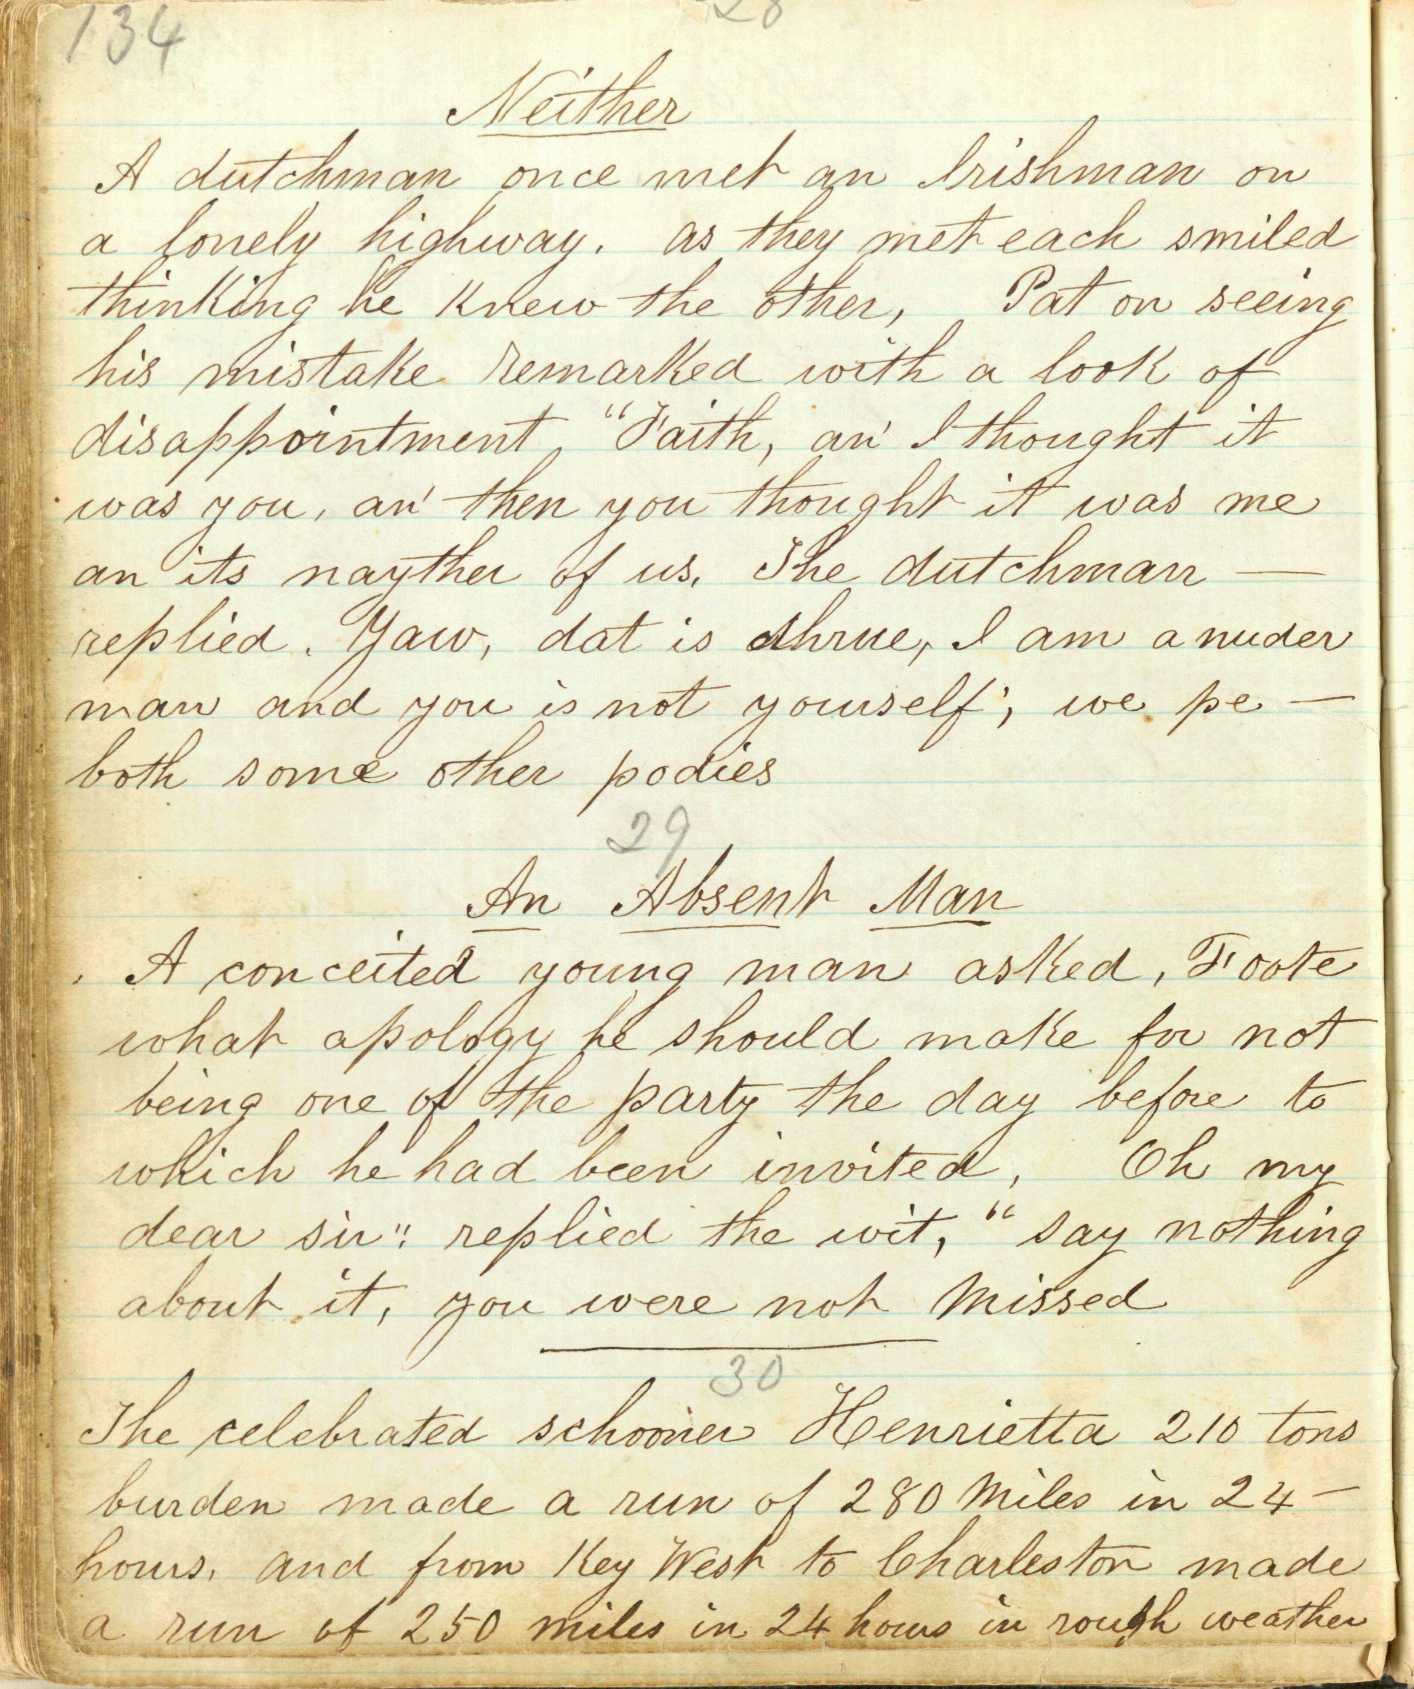 134
28
Neither
A dutchman once met an Irishman on
a lonely highway. as they met each smiled
thinking he knew the other, Pat on seeing
his mistake remarked with a look of
disappointment, "Faith, an' I thought it
was you, an' then you thought it was me
an its nayther of us. The dutchman —
replied. Yaw, dat is dhrue, I am a nuder
man and you is not yourself; we pe —
both some other podies
29
An Absent Man
A conceited young man asked, Foote
what apology he should make for not
being one of the party the day before to
which he had been invited, Oh my
dear sir": replied the wit, "say nothing
about it, you were not missed
30
The celebrated schooner Henrietta 210 tons
burden made a run of 280 miles in 24 —
hours. and from Key West to Charleston made
a run of 250 miles in 24 hours in rough weather